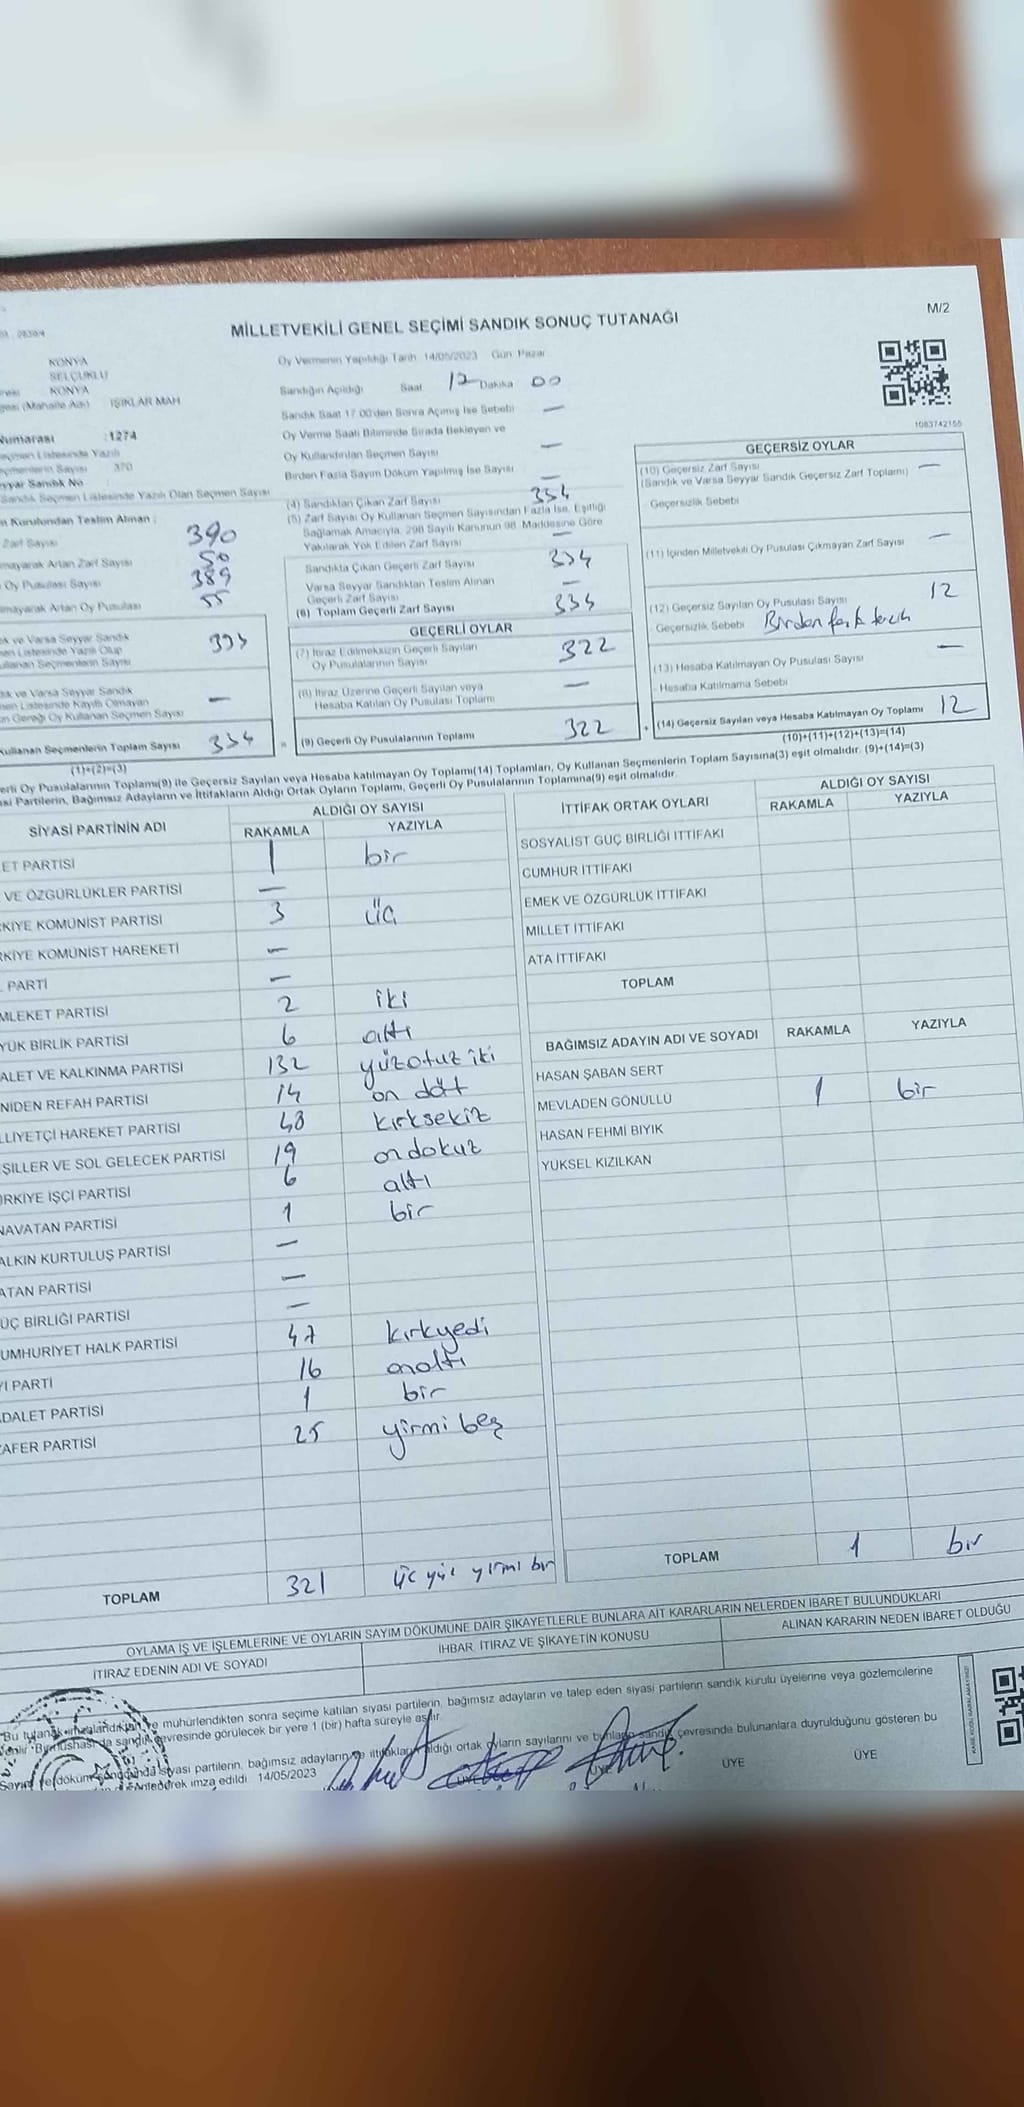 MİLLETVEKİLİ GENEL SEÇİMİ SANDIK SONUÇ TUTANAĞI
M/2
KONYA
SELÇUKLU
KONYA
(Mahalle Adı) IŞIKLAR MAH
Numarası :1274
Listesinde Yazılı
Seçmenlerin Sayısı 370
Seyyar Sandık No
Sandık Seçmen Listesinde Yazılı Olan Seçmen Sayısı
Kurulundan Teslim Alınan :
Zarf Sayısı 390
Artan Zarf Sayısı 50
Oy Pusulası Sayısı 389
Artan Oy Pusulası 55
ve Varsa Seyyar Sandık
Listesinde Yazılı Olup
Seçmenlerin Sayısı
334
ve Varsa Seyyar Sandık
Listesinde Kayıtlı Olmayan
Gereği Oy Kullanan Seçmen Sayısı —
Kullanan Seçmenlerin Toplam Sayısı 334
(1)+(2)=(3)
Oy Vermenin Yapıldığı Tarih 14/05/2023 Gün Pazar
Sandığın Açıldığı Saat 17 Dakika 00
Sandık Saat 17 00'den Sonra Açımış İse Sebebi —
Oy Verme Saati Bitiminde Sırada Bekleyen ve
Oy Kullandırılan Seçmen Sayısı —
Birden Fazla Sayım Döküm Yapılmış İse Sayısı —
(4) Sandıktan Çıkan Zarf Sayısı 334
(5) Zarf Sayısı Oy Kullanan Seçmen Sayısından Fazla İse, Eşitliği
Sağlamak Amacıyla, 298 Sayılı Kanunun 98. Maddesine Göre
Yakılarak Yok Edilen Zarf Sayısı —
Sandıkta Çıkan Geçerli Zarf Sayısı 334
Varsa Seyyar Sandıktan Teslim Alınan
Geçerli Zarf Sayısı —
(6) Toplam Geçerli Zarf Sayısı 334
GEÇERLİ OYLAR
(7) İtiraz Edilmeksizin Geçerli Sayılan
Oy Pusulalarının Sayısı 322
(8) İtiraz Üzerine Geçerli Sayılan veya
Hesaba Katılan Oy Pusulası Toplamı —
= (9) Geçerli Oy Pusulalarının Toplamı 322
1083742155
GEÇERSİZ OYLAR
(10) Geçersiz Zarf Sayısı —
(Sandık ve Varsa Seyyar Sandık Geçersiz Zarf Toplamı)
Geçersizlik Sebebi
(11) İçinden Milletvekili Oy Pusulası Çıkmayan Zarf Sayısı —
(12) Geçersiz Sayılan Oy Pusulası Sayısı 12
Geçersizlik Sebebi Birden fazla tercih
(13) Hesaba Katılmayan Oy Pusulası Sayısı —
- Hesaba Katılmama Sebebi
+ (14) Geçersiz Sayılan veya Hesaba Katılmayan Oy Toplamı 12
(10)+(11)+(12)+(13)=(14)
Oy Pusulalarının Toplamı(9) ile Geçersiz Sayılan veya Hesaba katılmayan Oy Toplamı(14) Toplamları, Oy Kullanan Seçmenlerin Toplam Sayısına(3) eşit olmalıdır. (9)+(14)=(3)
Partilerin, Bağımsız Adayların ve İttifakların Aldığı Ortak Oyların Toplamı, Geçerli Oy Pusulalarının Toplamına(9) eşit olmalıdır.
SİYASİ PARTİNİN ADI
ALDIĞI OY SAYISI
RAKAMLA YAZIYLA
ET PARTİSİ 1 bir
VE ÖZGÜRLÜKLER PARTİSİ —
RKİYE KOMÜNİST PARTİSİ 3 üç
RKİYE KOMÜNİST HAREKETİ —
PARTİ —
MLEKET PARTİSİ 2 iki
YÜK BİRLİK PARTİSİ 6 altı
ALET VE KALKINMA PARTİSİ 132 yüzotuz iki
NİDEN REFAH PARTİSİ 14 on dört
LLİYETÇİ HAREKET PARTİSİ 48 kırksekiz
ŞİLLER VE SOL GELECEK PARTİSİ 19 ondokuz
RKİYE İŞÇİ PARTİSİ 6 altı
NAVATAN PARTİSİ 1 bir
ALKIN KURTULUŞ PARTİSİ —
ATAN PARTİSİ —
ÜÇ BİRLİĞİ PARTİSİ —
UMHURİYET HALK PARTİSİ 47 kırkyedi
Yİ PARTİ 16 onaltı
DALET PARTİSİ 1 bir
AFER PARTİSİ 25 yirmi beş
TOPLAM 321 üç yüz yirmi bir
İTTİFAK ORTAK OYLARI
ALDIĞI OY SAYISI
RAKAMLA YAZIYLA
SOSYALİST GÜÇ BİRLİĞİ İTTİFAKI
CUMHUR İTTİFAKI
EMEK VE ÖZGÜRLÜK İTTİFAKI
MİLLET İTTİFAKI
ATA İTTİFAKI
TOPLAM
BAĞIMSIZ ADAYIN ADI VE SOYADI RAKAMLA YAZIYLA
HASAN ŞABAN SERT
MEVLADEN GÖNÜLLÜ 1 bir
HASAN FEHMİ BIYIK
YÜKSEL KIZILKAN
TOPLAM 1 bir
OYLAMA İŞ VE İŞLEMLERİNE VE OYLARIN SAYIM DÖKÜMÜNE DAİR ŞİKAYETLERLE BUNLARA AİT KARARLARIN NELERDEN İBARET BULUNDUKLARI
İTİRAZ EDENİN ADI VE SOYADI
İHBAR, İTİRAZ VE ŞİKAYETİN KONUSU
ALINAN KARARIN NEDEN İBARET OLDUĞU
Bu tutanak imzalandıktan ve mühürlendikten sonra seçime katılan siyasi partilerin, bağımsız adayların ve talep eden siyasi partilerin sandık kurulu üyelerine veya gözlemcilerine
Bir nüshası da sandık çevresinde görülecek bir yere 1 (bir) hafta süreyle asılır.
siyasi partilerin, bağımsız adayların ve ittifakların aldığı ortak oyların sayılarını ve bunların sandık çevresinde bulunanlara duyrulduğunu gösteren bu
imza edildi. 14/05/2023
ÜYE ÜYE ÜYE ÜYE